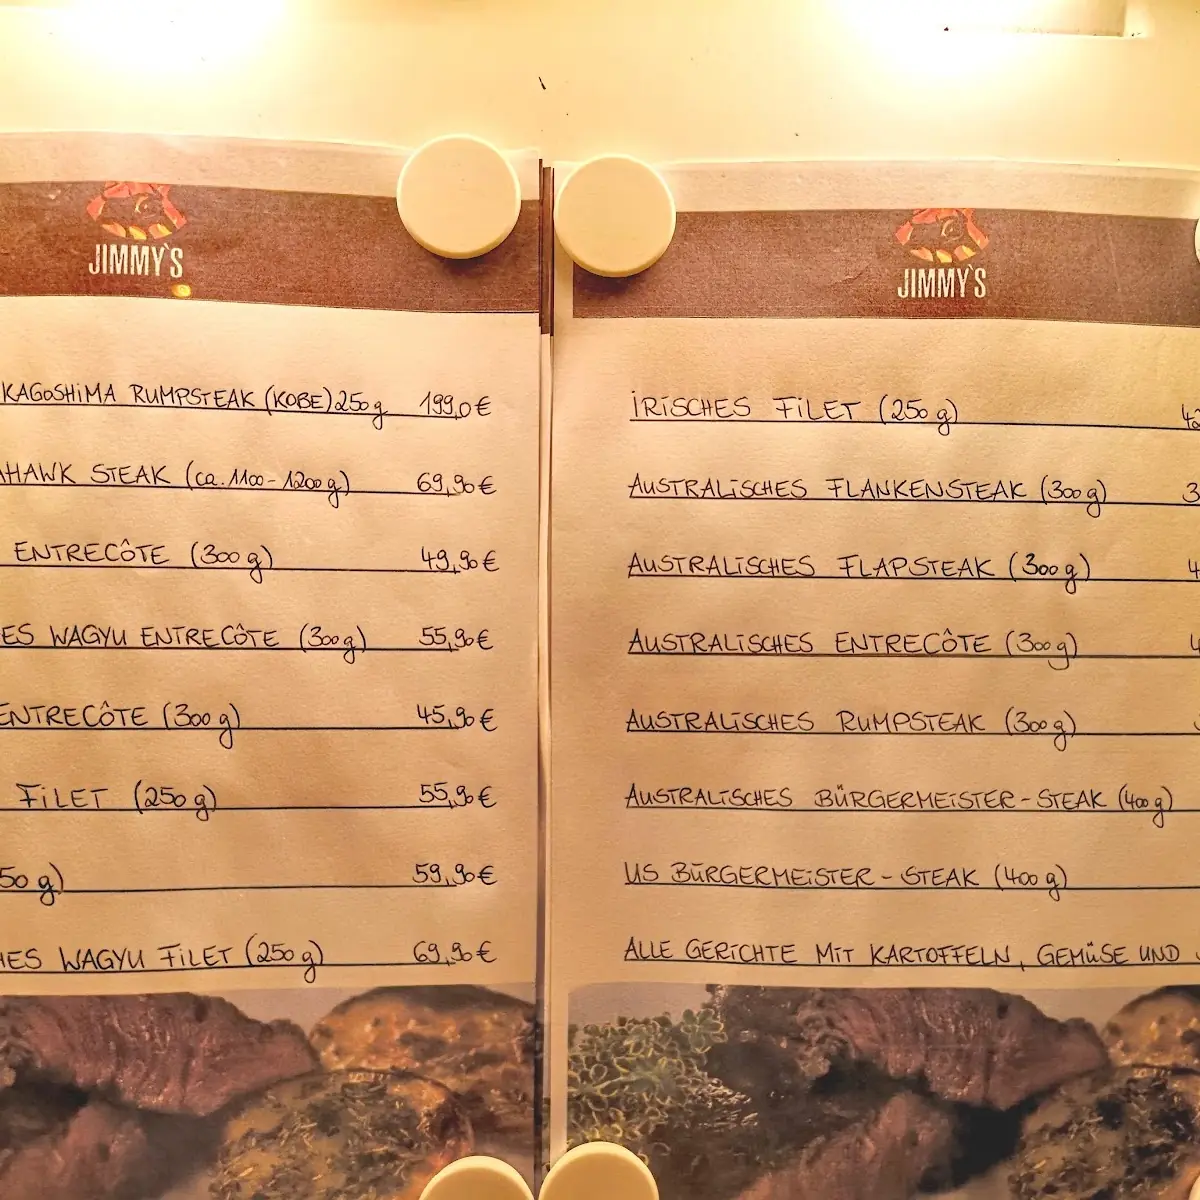 JIMMY`S
KAGOSHIMA RUMPSTEAK (KOBE) 250 g 199,0 €
AHAWK STEAK (ca. 1100 - 1200 g) 69,90 €
ENTRECÔTE (300 g) 49,90 €
ES WAGYU ENTRECÔTE (300 g) 55,90 €
ENTRECÔTE (300 g) 45,90 €
FILET (250 g) 55,90 €
50 g) 59,90 €
HES WAGYU FILET (250 g) 69,90 €
JIMMY`S
IRISCHES FILET (250 g)
AUSTRALISCHES FLANKENSTEAK (300 g) 3
AUSTRALISCHES FLAPSTEAK (300 g) 4
AUSTRALISCHES ENTRECÔTE (300 g) 4
AUSTRALISCHES RUMPSTEAK (300 g)
AUSTRALISCHES BÜRGERMEISTER - STEAK (400 g)
US BÜRGERMEISTER - STEAK (400 g)
ALLE GERICHTE MIT KARTOFFELN, GEMÜSE UND